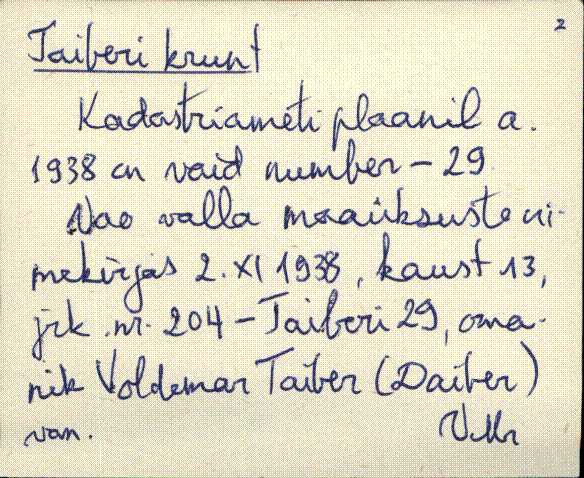 2
Taiberi krunt
Kadastriameti plaanil a.
1938 on vaid number - 29
Vao valla maaüksuste ni-
mekirjas 2. XI 1938, kaust 13,
jrk. nr. 204 - Taiberi 29, oma-
nik Voldemar Taiber (Daiber)
van.